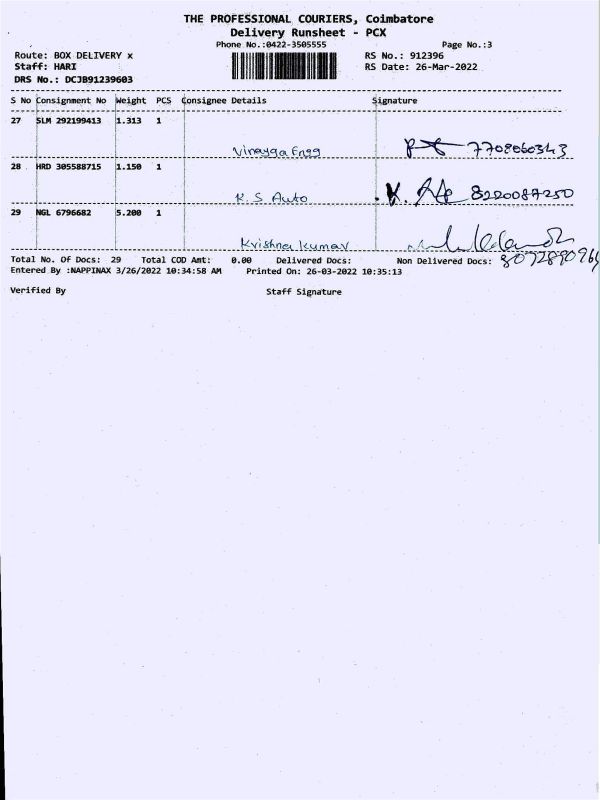 THE PROFESSIONAL COURIERS, Coimbatore
Delivery Runsheet - PCX
Phone No.:0422-3505555 Page No.:3
Route: BOX DELIVERY x RS No.: 912396
Staff: HARI RS Date: 26-Mar-2022
DRS No.: DCJB91239603
S No Consignment No Weight PCS Consignee Details Signature
27 SLM 292199413 1.313 1
Vinayga Engg 7708060343
28 HRD 305588715 1.150 1
K. S Auto K. 8220087250
29 NGL 6796682 5.200 1
Krishna kumar
Total No. Of Docs: 29 Total COD Amt: 0.00 Delivered Docs: Non Delivered Docs: 8072890964
Entered By :NAPPINAX 3/26/2022 10:34:58 AM Printed On: 26-03-2022 10:35:13
Verified By Staff Signature